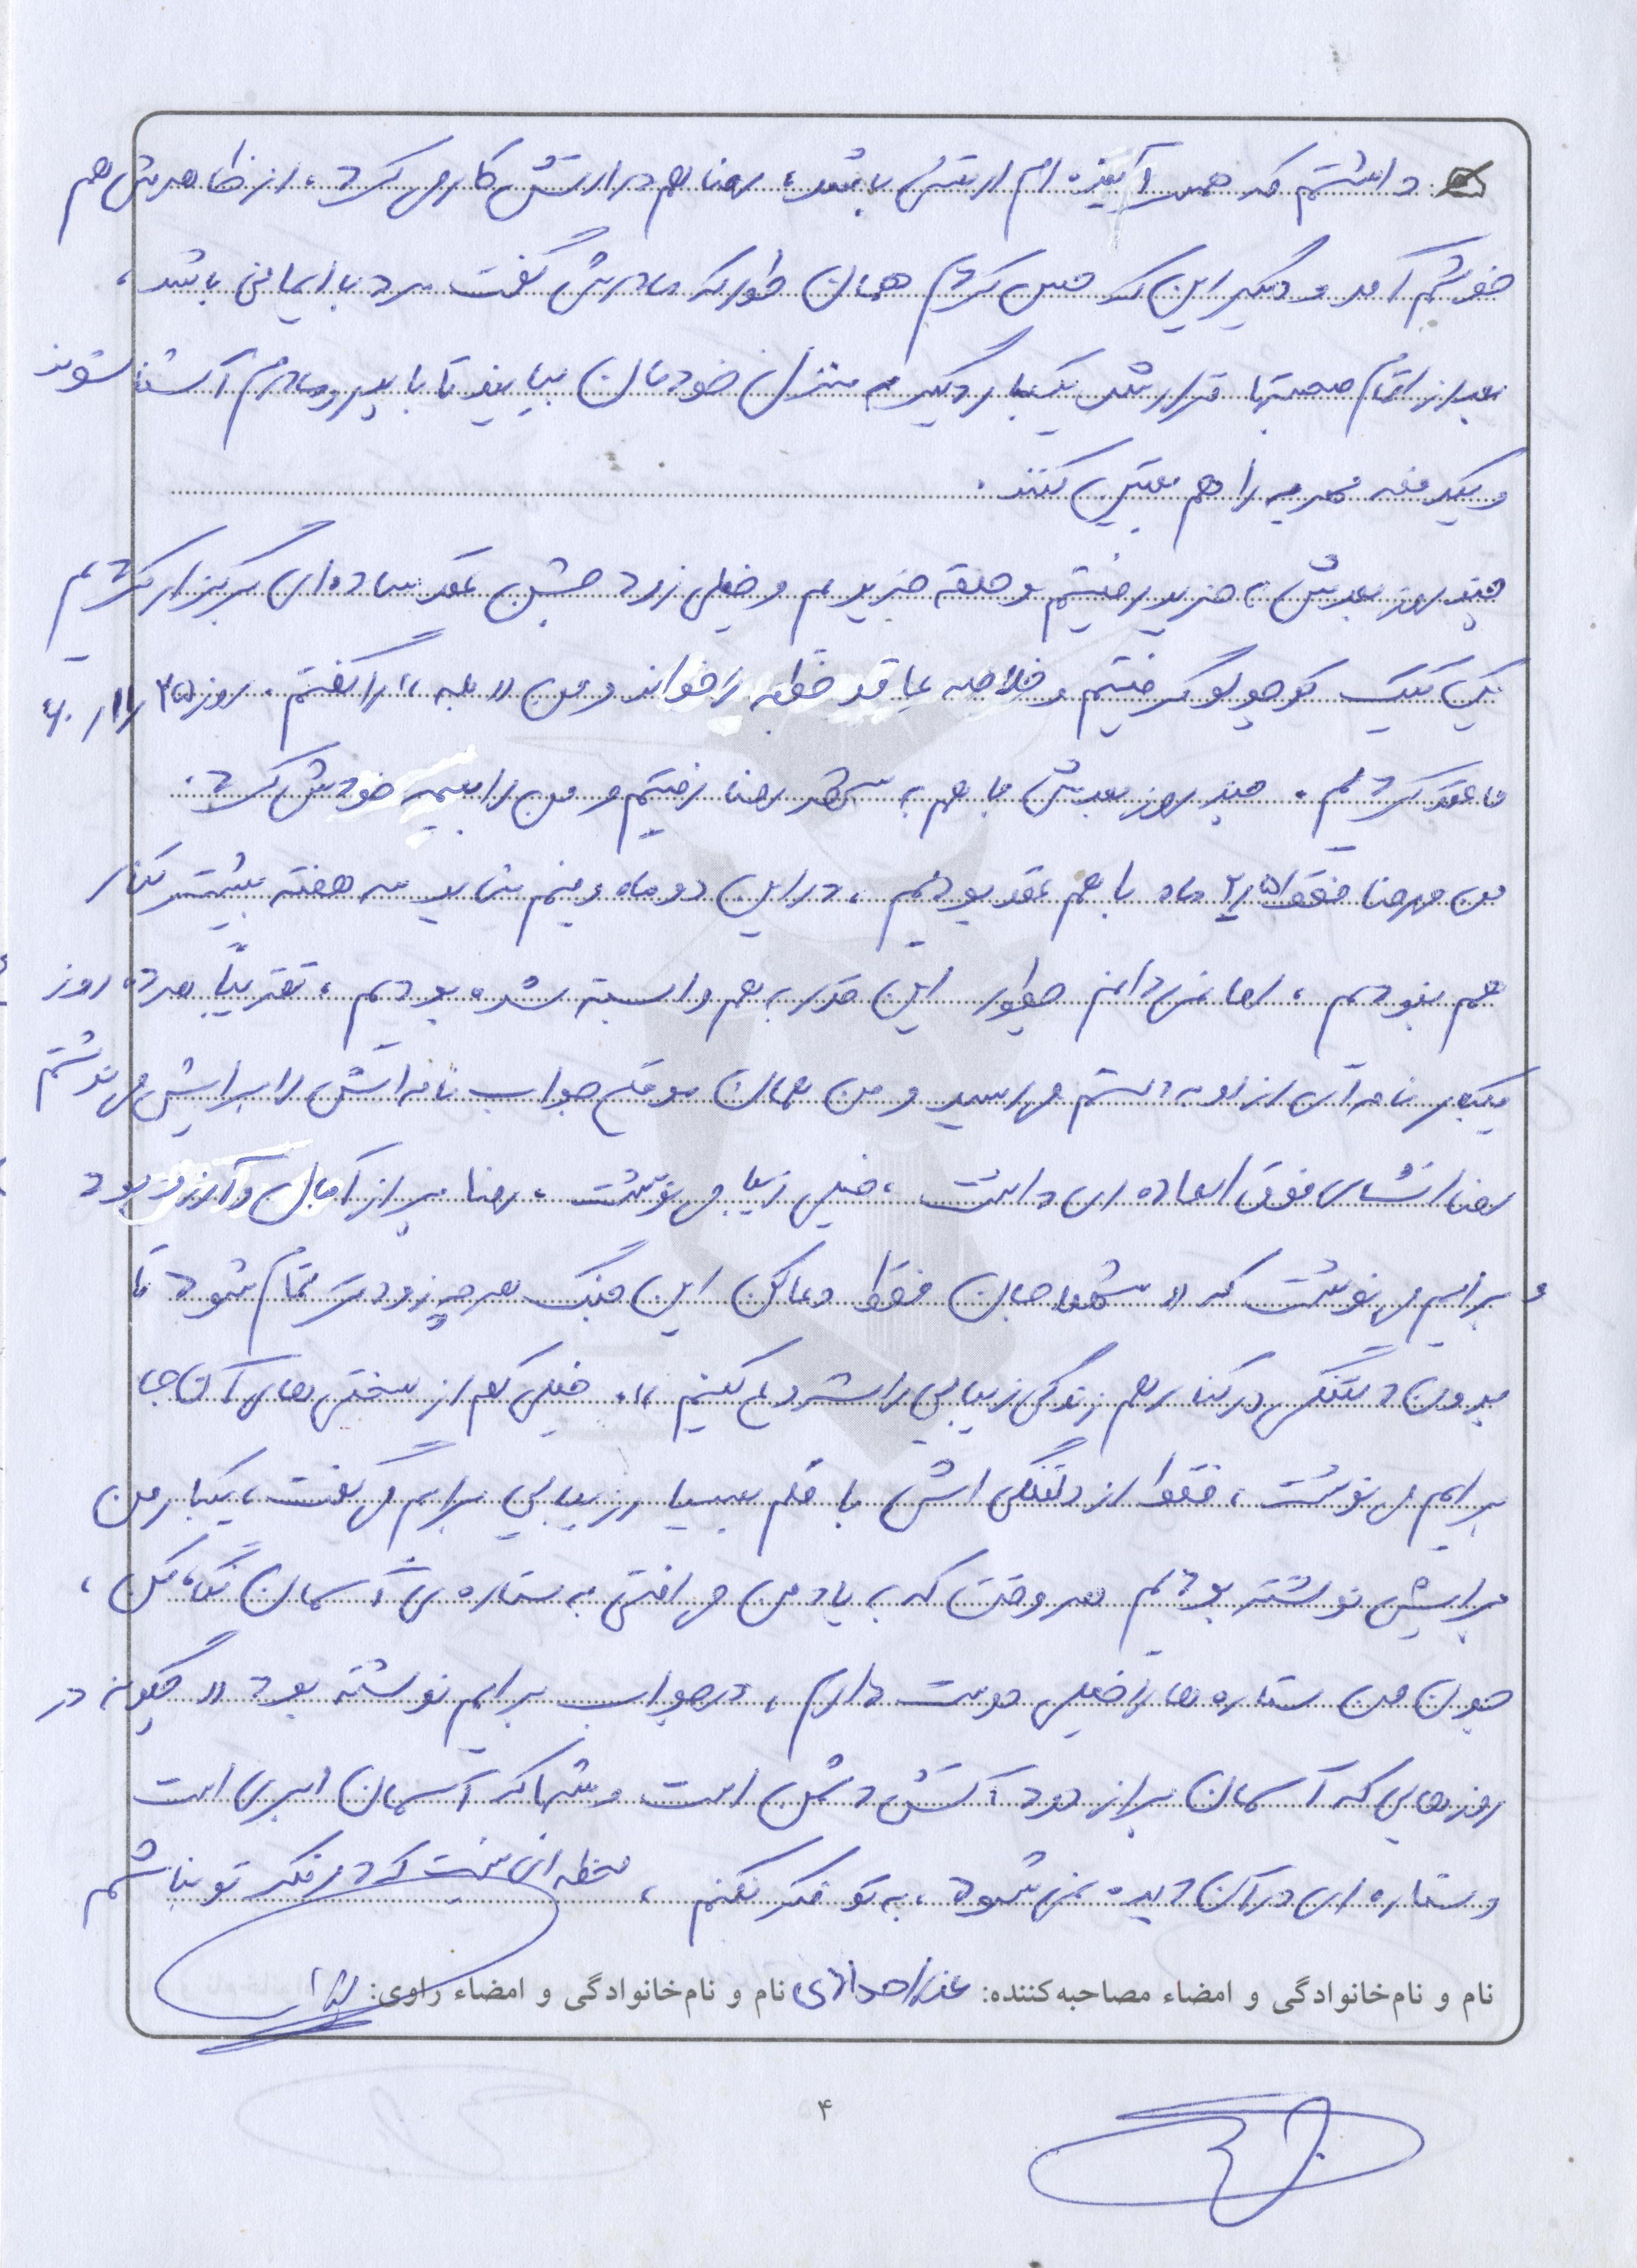 داشتم که همسر آینده ام ارتشی باشد، رضا هم در ارتش کار می کرد، از ظاهرش هم
خوشم آمد و دیگر این که حس کردم همان طور که مادرش گفت مرد با ایمانی باشد،
بعد از اتمام صحبتها قرار شد یکبار دیگر به منزل خودمان بیایند تا با پدر و مادرم آشنا شوند
و یکدفعه مهریه را هم تعیین کنند.
چند روز بعدش، خرید رفتیم و حلقه خریدیم و خیلی زود جشن عقد ساده ای برگزار کردیم
یک کیک کوچولو گرفتیم و خلاصه عاقد خطبه را خواند و من «بله» را گفتم. روز ۲۵/۱۱/۶۰
ما عقد کردیم. چند روز بعدش با هم به مشهد رضا رفتیم و من را بیمه خودش کرد.
من و رضا فقط ۲/۵ ماه با هم عقد بودیم، در این دو ماه و نیم شاید سه هفته بیشتر کنار
هم نبودیم، اما نمی دانم چطور این قدر به هم وابسته شده بودیم، تقریباً هر ده روز
یکبار نامه ای از او به دستم می رسید و من همان موقع جواب نامه اش را برایش می نوشتم
رضا انشای فوق العاده ای داشت، خیلی زیبا می نوشت، رضا پر از آمال و آرزو بود
و برایم می نوشت که «شهلا جان فقط دعا کن این جنگ هر چه زودتر تمام شود تا
بدون دلتنگی در کنار هم زندگی زیبایی را شروع کنیم». خیلی کم از سختی های آن جا
برایم می نوشت، فقط از دلتنگی اش با قلم بسیار زیبایی برایم می گفت، یکبار من
برایش نوشته بودم هر وقت که به یاد من می افتی به ستاره ی آسمان نگاه کن،
چون من ستاره ها را خیلی دوست دارم، در جواب برایم نوشته بود «چگونه در
روزهایی که آسمان پر از دود آتش دشمن است و شبها که آسمان ابری است
و ستاره ای در آن دیده نمی شود، به تو فکر نکنم، لحظه ای نیست که در فکر تو نباشم
نام و نام‌خانوادگی و امضاء مصاحبه‌کننده: نام و نام‌خانوادگی و امضاء راوی:
۴